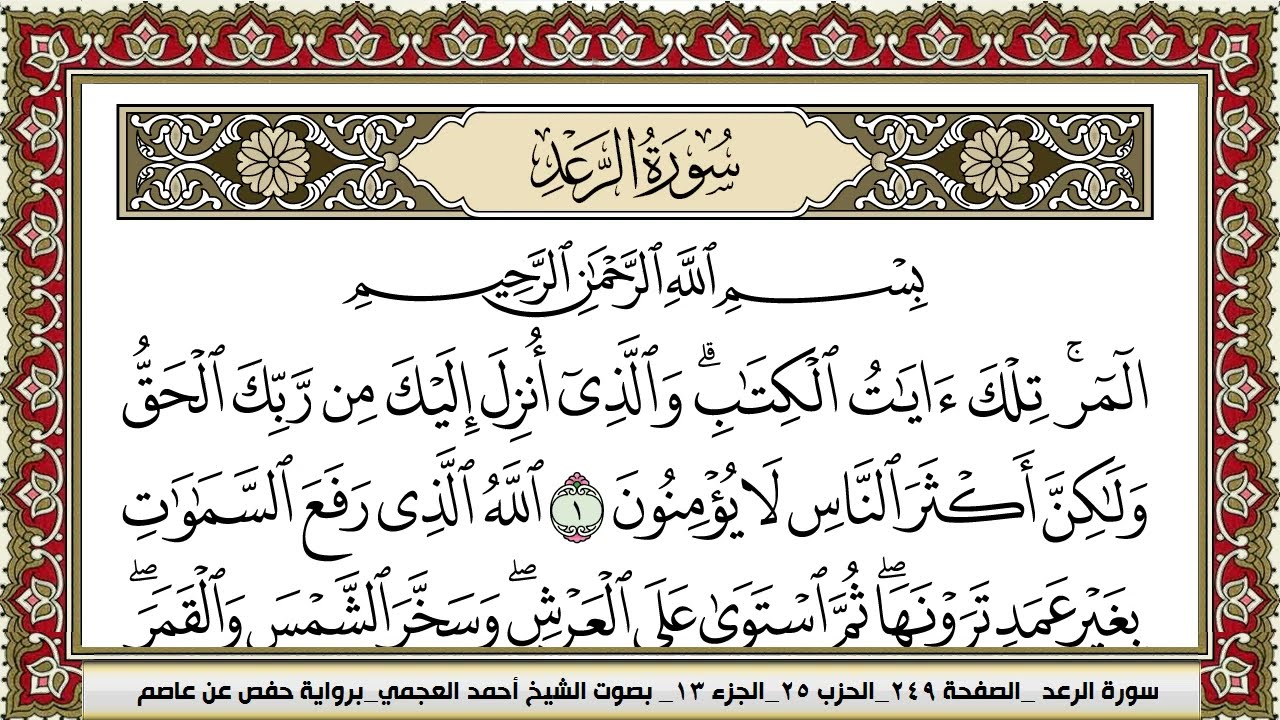 سُورَةُ الرَّعْدِ
بِسْمِ ٱللَّهِ ٱلرَّحْمَٰنِ ٱلرَّحِيمِ
الٓمٓرۚ تِلْكَ ءَايَٰتُ ٱلْكِتَٰبِۗ وَٱلَّذِىٓ أُنزِلَ إِلَيْكَ مِن رَّبِّكَ ٱلْحَقُّ
وَلَٰكِنَّ أَكْثَرَ ٱلنَّاسِ لَا يُؤْمِنُونَ ١ ٱللَّهُ ٱلَّذِى رَفَعَ ٱلسَّمَٰوَٰتِ
بِغَيْرِ عَمَدٍ تَرَوْنَهَاۖ ثُمَّ ٱسْتَوَىٰ عَلَى ٱلْعَرْشِۖ وَسَخَّرَ ٱلشَّمْسَ وَٱلْقَمَرَۖ
سورة الرعد _الصفحة ٢٤٩_الحزب ٢٥_الجزء ١٣_ بصوت الشيخ أحمد العجمي_برواية حفص عن عاصم